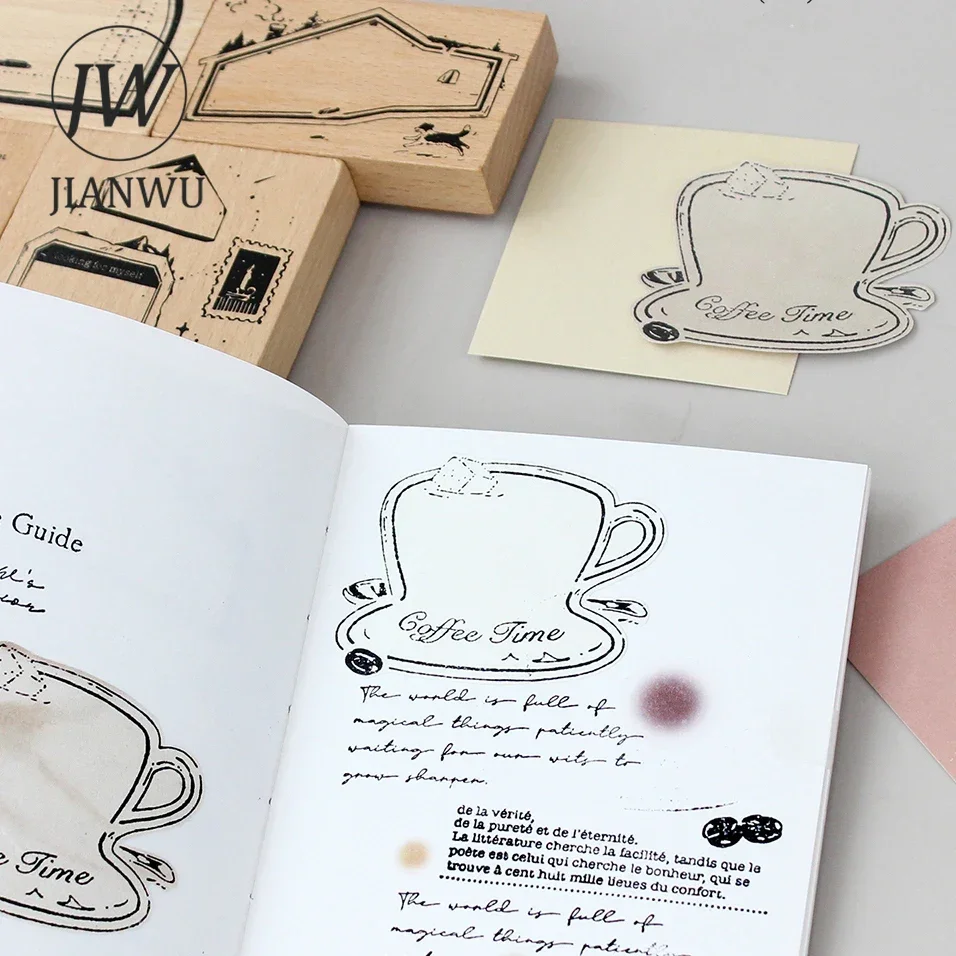 JW
JIANWU
looking for myself
Coffee Time
Guide
Coffee Time
The world is full of
magical things patiently
waiting for our wits to
grow sharper.
de la vérité,
de la pureté et de l'éternité.
La littérature cherche la facilité, tandis que le
poète est celui qui cherche le bonheur, qui se
trouve à cent huit mille lieues du confort.
The world is full of
magical things patiently
Time